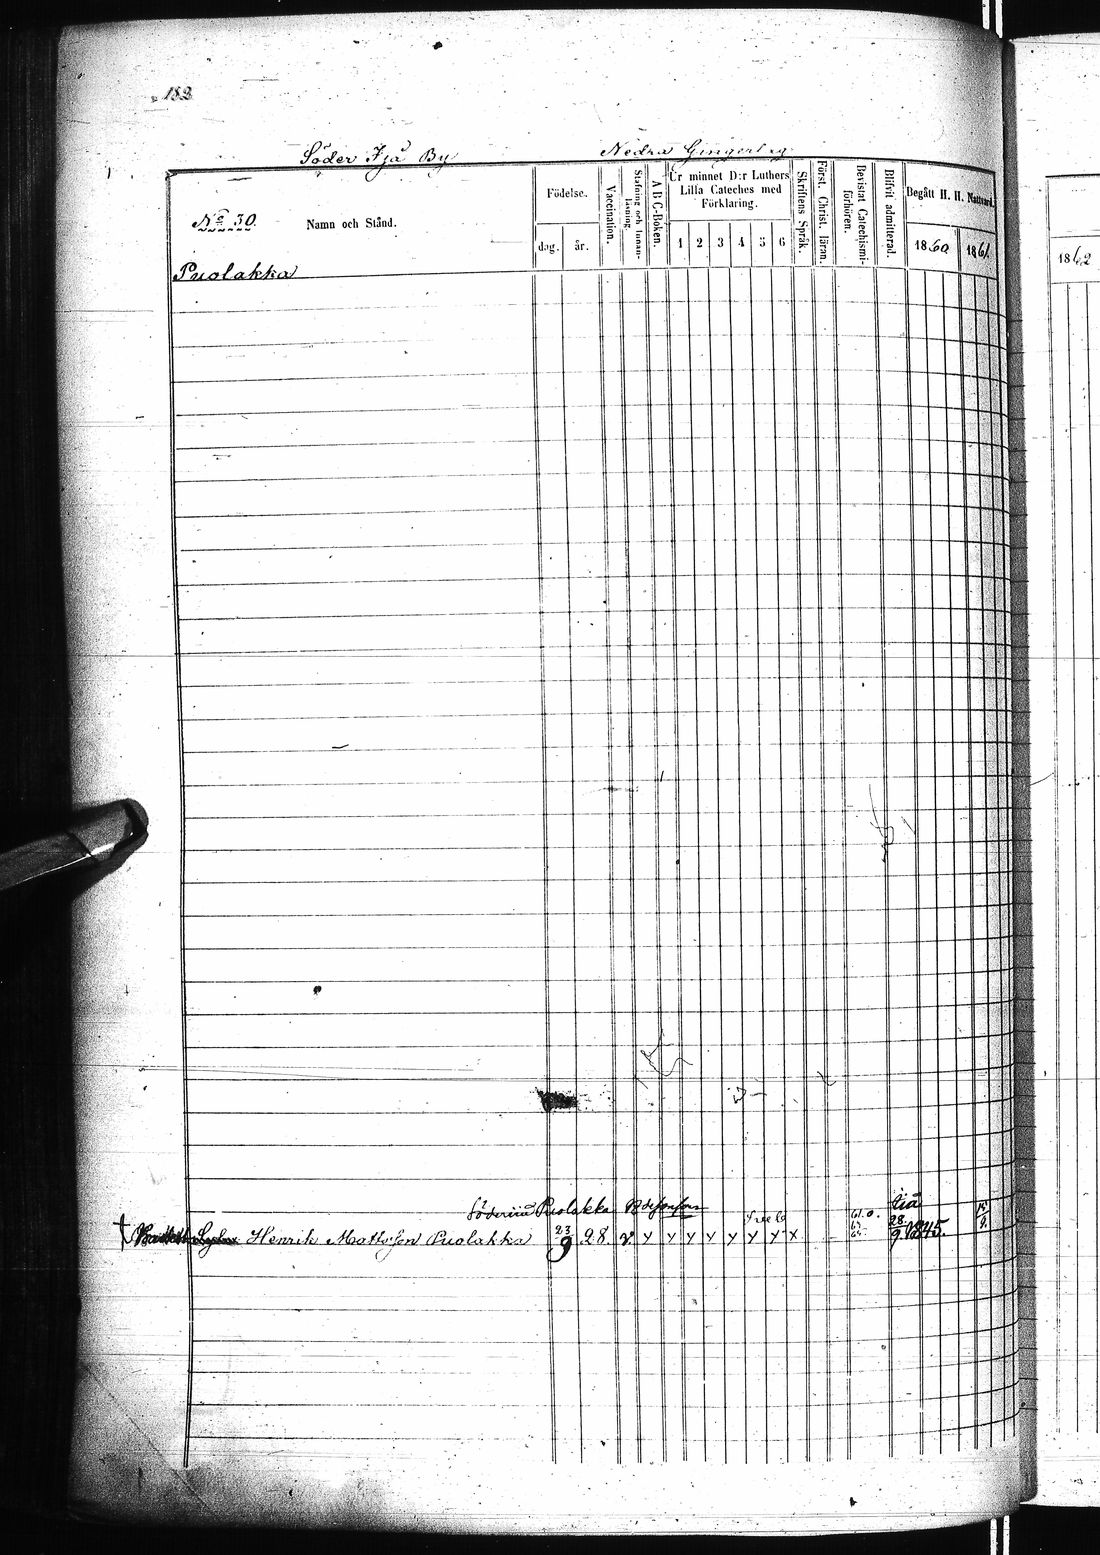 182
Söder Ijå By Nedra Gingerleg
No 30. Namn och Stånd. Födelse. dag. år. Vaccination. Stafning och Innanläsning. A B C-Boken. Ur minnet D:r Luthers Lilla Cateches med Förklaring. 1 2 3 4 5 6 Skriftens Språk. Först. Christ. läran. Bevistat Catechismiförhören. Blifvit admitterad. Begått H. H. Nattvard. 1860 1861 1862
Puolakka
Puolakka
Henrik Mattsson Puolakka 23/9 28 v y y y y y y y x 28/9 1845.